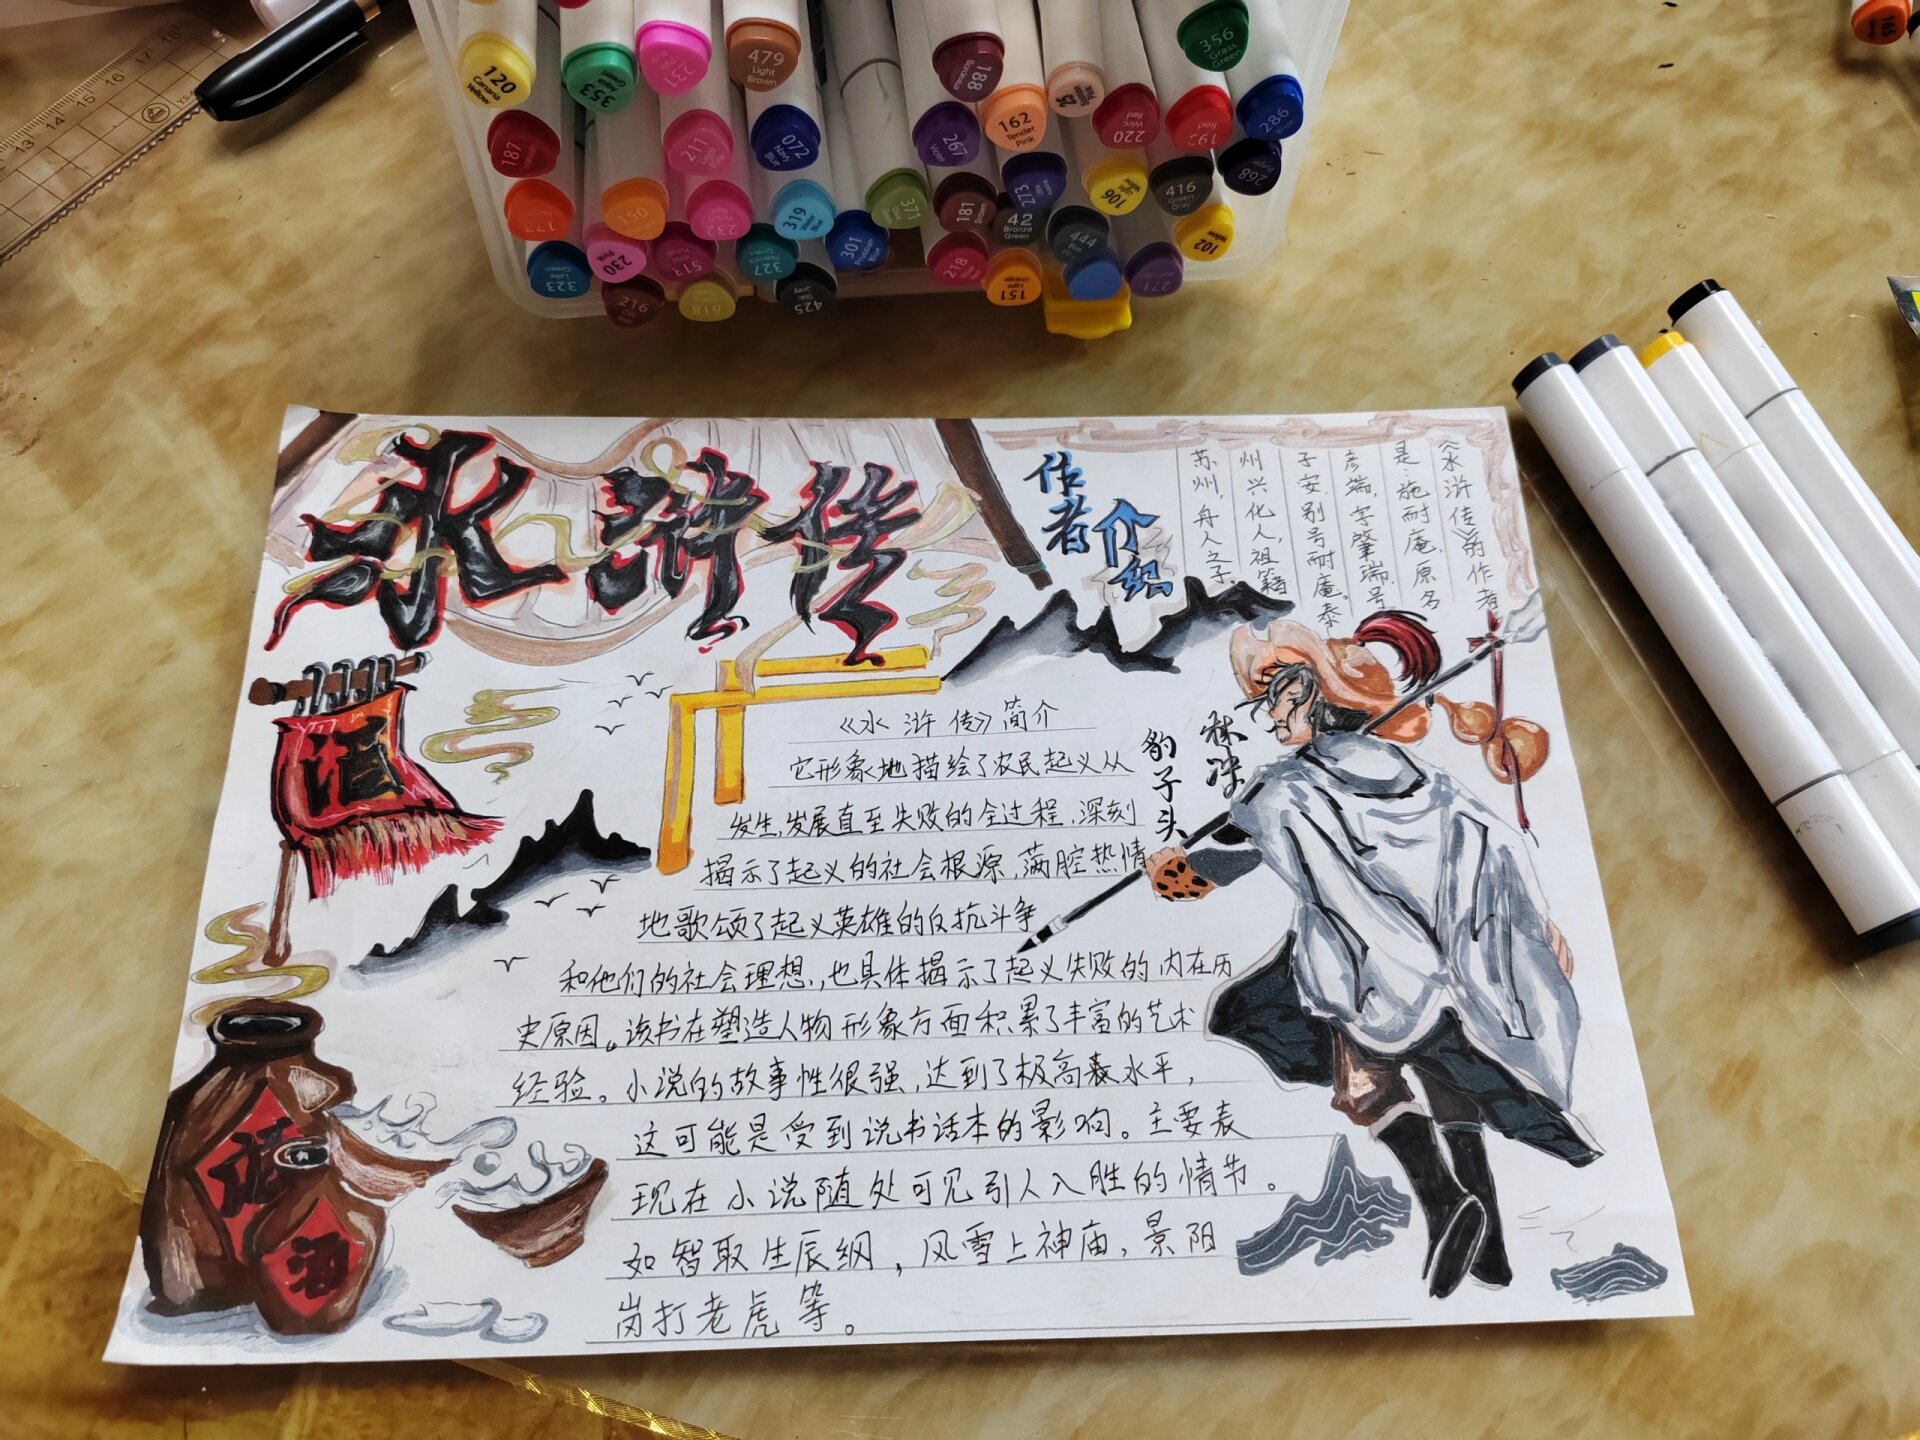 120
Canaria
Yellow
353
231
479
Light
Brown
188
Bordeaux
25
356
Grass
Green
187
211
072
Navy
Blue
267
Violet
162
Tender
Pink
220
Wine
Red
193
Red
286
Blue
150
232
319
301
Prussian
Blue
371
181
Brown
273
42
Bronze
Green
106
444
416
Green
Gray
268
102
Yellow
323
Lake
Green
230
Pink
513
327
216
618
425
218
151
Light
Orange
271
13 14 15 16 17 18
水浒传
作者
介绍
《水浒传》的作者
是:施耐庵,原名
彦端,字肇瑞,号
子安,别号耐庵。泰
州兴化人,祖籍
苏州,舟人之子,
酒
《水浒传》简介
它形象地描绘了农民起义从
发生,发展直至失败的全过程,深刻
揭示了起义的社会根源,满腔热情
地歌颂了起义英雄的反抗斗争
和他们的社会理想,也具体揭示了起义失败的内在历
史原因。该书在塑造人物形象方面积累了丰富的艺术
经验。小说的故事性很强,达到了极高水平,
这可能是受到说书话本的影响。主要表
现在小说随处可见引人入胜的情节。
如智取生辰纲,风雪上神庙,景阳
岗打老虎等。
豹子头
林冲
酒
酒